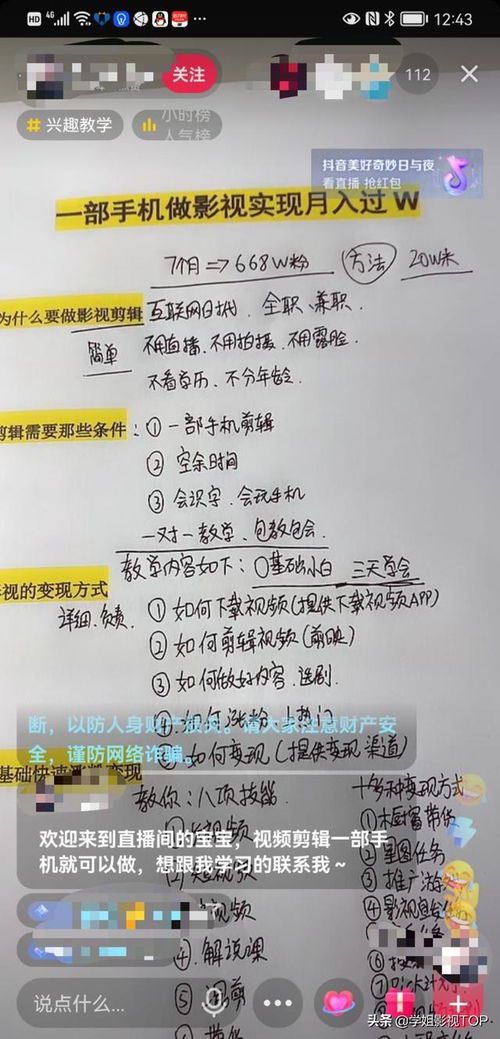 HD 4G 12:43
关注
112
兴趣教学
小时榜
人气榜
抖音美好奇妙日与夜
看直播 抢红包
一部手机做影视实现月入过 W
7个月⇒668W粉 方法 20W米
为什么要做影视剪辑 互联网时代、全职、兼职.
简单 不用直播、不用拍摄、不用露脸.
不看学历、不分年龄.
剪辑需要那些条件: ①一部手机剪辑
② 空余时间
③ 会识字、会玩手机
一对一教学、包教包会.
教学内容如下: 0基础小白 三天学会
视的变现方式
详细、负责. ① 如何下载视频(提供下载视频APP)
② 如何剪辑视频(剪映)
③ 如何做好内容、选剧
④ 如何涨粉、上热门
断，以防人身财产损失。请大家注意财产安
全，谨防网络诈骗。
如何变现(提供变现渠道)
基础快速 变现
教你:八项技能. 十多种变现方式
欢迎来到直播间的宝宝，视频剪辑一部手
机就可以做，想跟我学习的联系我～
②星图任务
③推广游
④影视
视频
④.解说课
⑤
说点什么...
头条 @学姐影视TOP